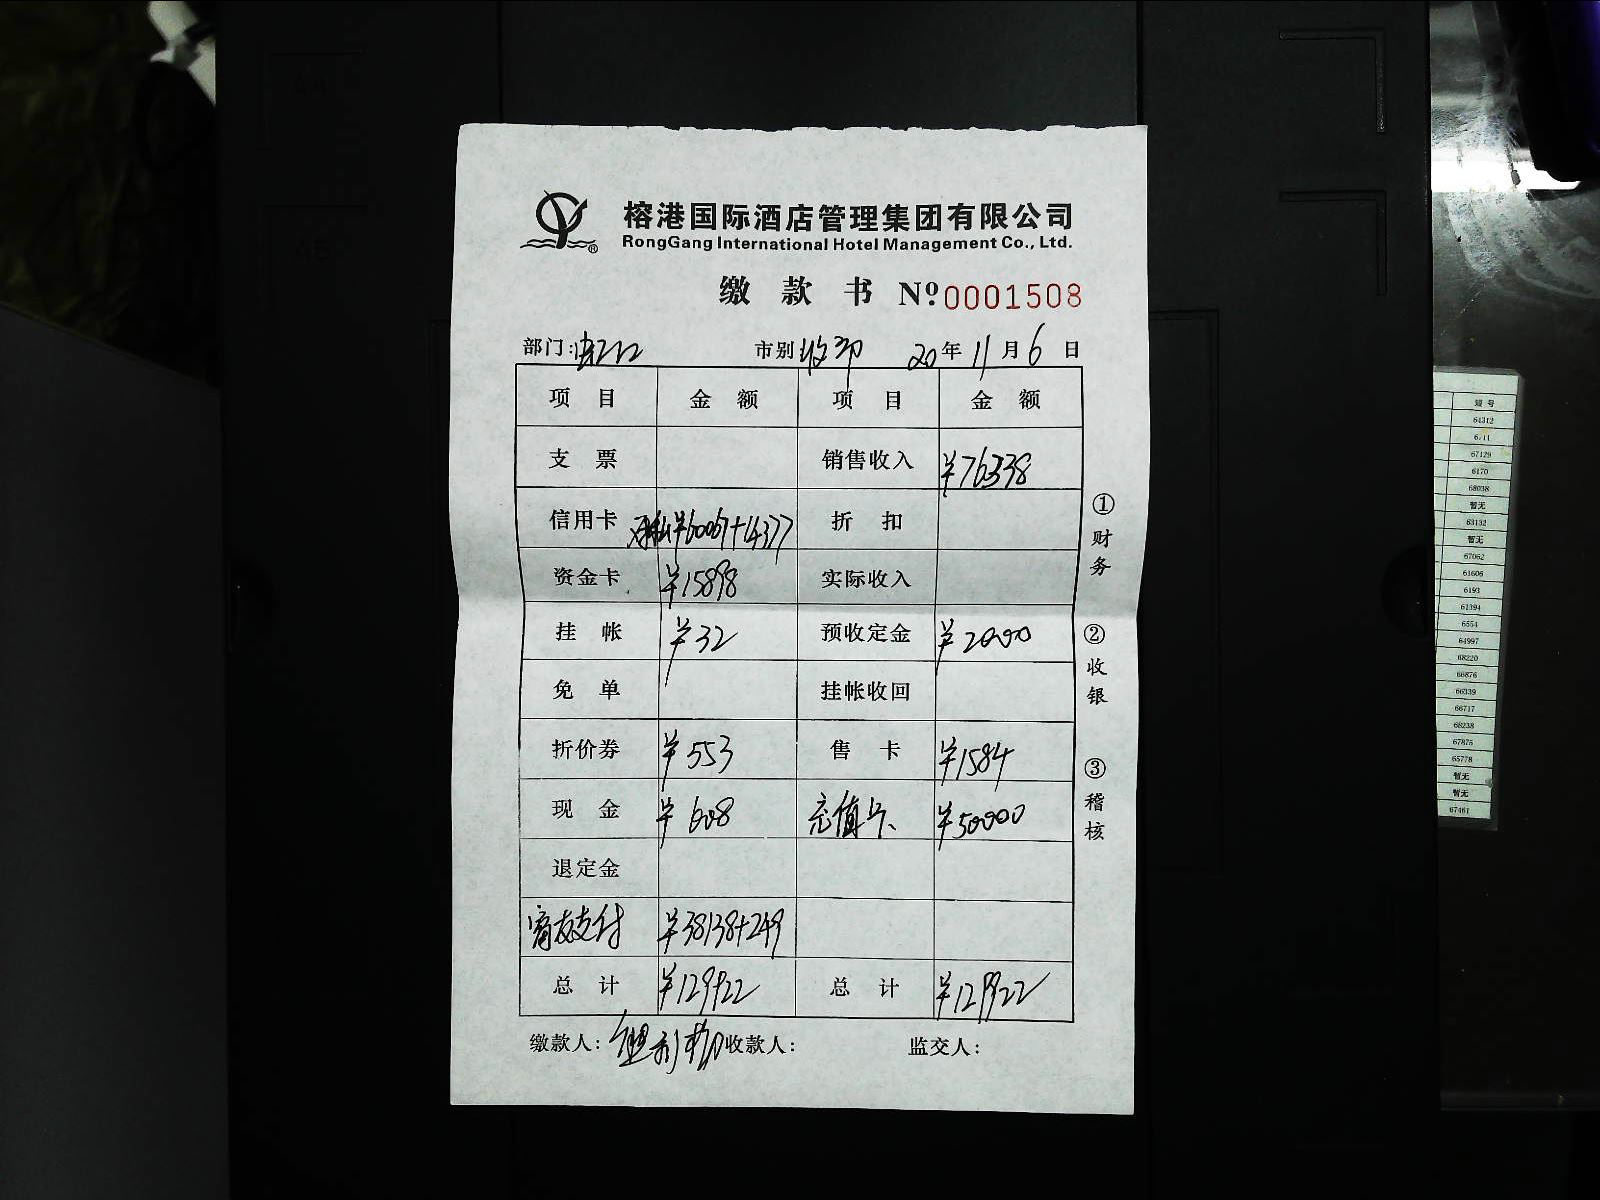 榕港国际酒店管理集团有限公司
RongGang International Hotel Management Co., Ltd.
缴款书 Nº 0001508
部门: 市别 收 20年11月6日
项目 金额 项目 金额
支票 销售收入 ¥76338
信用卡 ¥60067+14377 折扣
资金卡 ¥15898 实际收入
挂帐 ¥32 预收定金 ¥2000
免单 挂帐收回
折价券 ¥553 售卡 ¥1584
现金 ¥608 充值卡 ¥50000
退定金
支付 ¥38138+249
总计 ¥129922 总计 ¥129922
缴款人: 收款人: 监交人:
①财务
②收银
③稽核
短号
64312
67129
6170
68038
暂无
63132
暂无
67062
61606
6193
61394
6554
64997
68220
66876
66339
66717
68238
67875
65778
暂无
暂无
67461